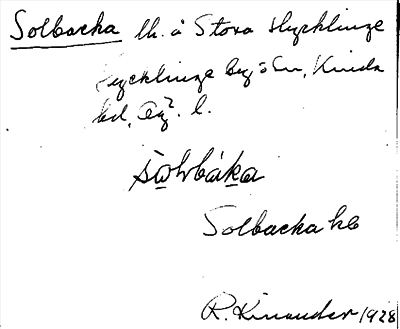 Solbacka lh. å Stora Hycklinge
Hycklinge by o sn, Kinda
hd, Ög. l.
Solbacka hb
R. Kinander 1928